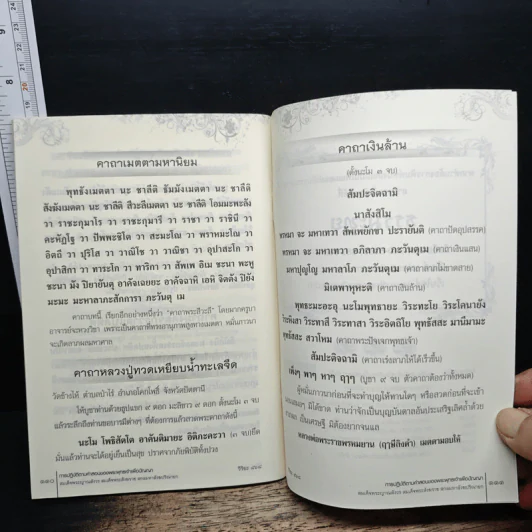 คาถาเมตตามหานิยม
พุทธังเมตตา นะ ชาลีติ ธัมมังเมตตา นะ ชาลีติ
สังฆังเมตตา นะ ชาลีติ สีวะลีเมตตา นะ ชาลีติ โอมมะพะลัง
วา ราชะกุมาโร วา ราชะกุมารี วา ราชา วา ราชินี วา
คะหัฏโฐ วา ปัพพะชิโต วา สะมะโณ วา พราหมะโณ วา
อิตถี วา ปุริโส วา วาณิโช วา วาณิชา วา อุปาสะโก วา
อุปาสิกา วา ทาระโก วา ทาริกา วา สัพเพ อิเม ชะนา พะหู
ชะนา มัง ปิยายันตุ อาคัจเฉยยะ อาคัจฉาหิ เอหิ จิตตัง ปิยัง
มะมะ มะหาลาภะสักการา ภะวันตุ เม
คาถาบทนี้ เรียกอีกอย่างหนึ่งว่า "คาถาพระสีวะลี"
คาถาหลวงปู่ทวดเหยียบน้ำทะเลจืด
วัดช้างให้ ตำบลป่าไร่ อำเภอโคกโพธิ์ จังหวัดปัตตานี
ให้บูชาท่านด้วยธูปแขก ๙ ดอก มะลิขาว ๙ ดอก ตั้งนะโม ๓ จบ
แล้วระลึกถึงท่านขอบารมีต่างๆ ที่ต้องการแล้วสวดพระคาถาดังนี้
นะโม โพธิสัตโต อาคันติมายะ อิติภะคะวา (๓ จบ)
คาถาเงินล้าน
(ตั้งนะโม ๓ จบ)
สัมปะจิตฉามิ
นาสังสิโม
พรหมา จะ มหาเทวา สัพเพยักขา ปะรายันติ (คาถาปัดอุปสรรค)
พรหมา จะ มหาเทวา อภิลาภา ภะวันตุเม (คาถาเงินแสน)
มหาปุญโญ มหาลาโภ ภะวันตุเม (คาถาลาภไม่ขาดสาย)
มิเตพาหุหะติ (คาถาเงินล้าน)
พุทธะมะอะอุ นะโมพุทธายะ วิระทะโย วิระโคนายัง
วิระหิงสา วิระทาสี วิระทาสา วิระอิตถิโย พุทธัสสะ มานีมามะ
พุทธัสสะ สวาโหม (คาถาพระปัจเจกพุทธเจ้า)
สัมปะติจฉามิ (คาถาเร่งลาภให้ได้เร็วขึ้น)
เพ็งๆ พาๆ หาๆ ฤาๆ (บูชา ๙ จบ ตัวคาถาต้องว่าทั้งหมด)